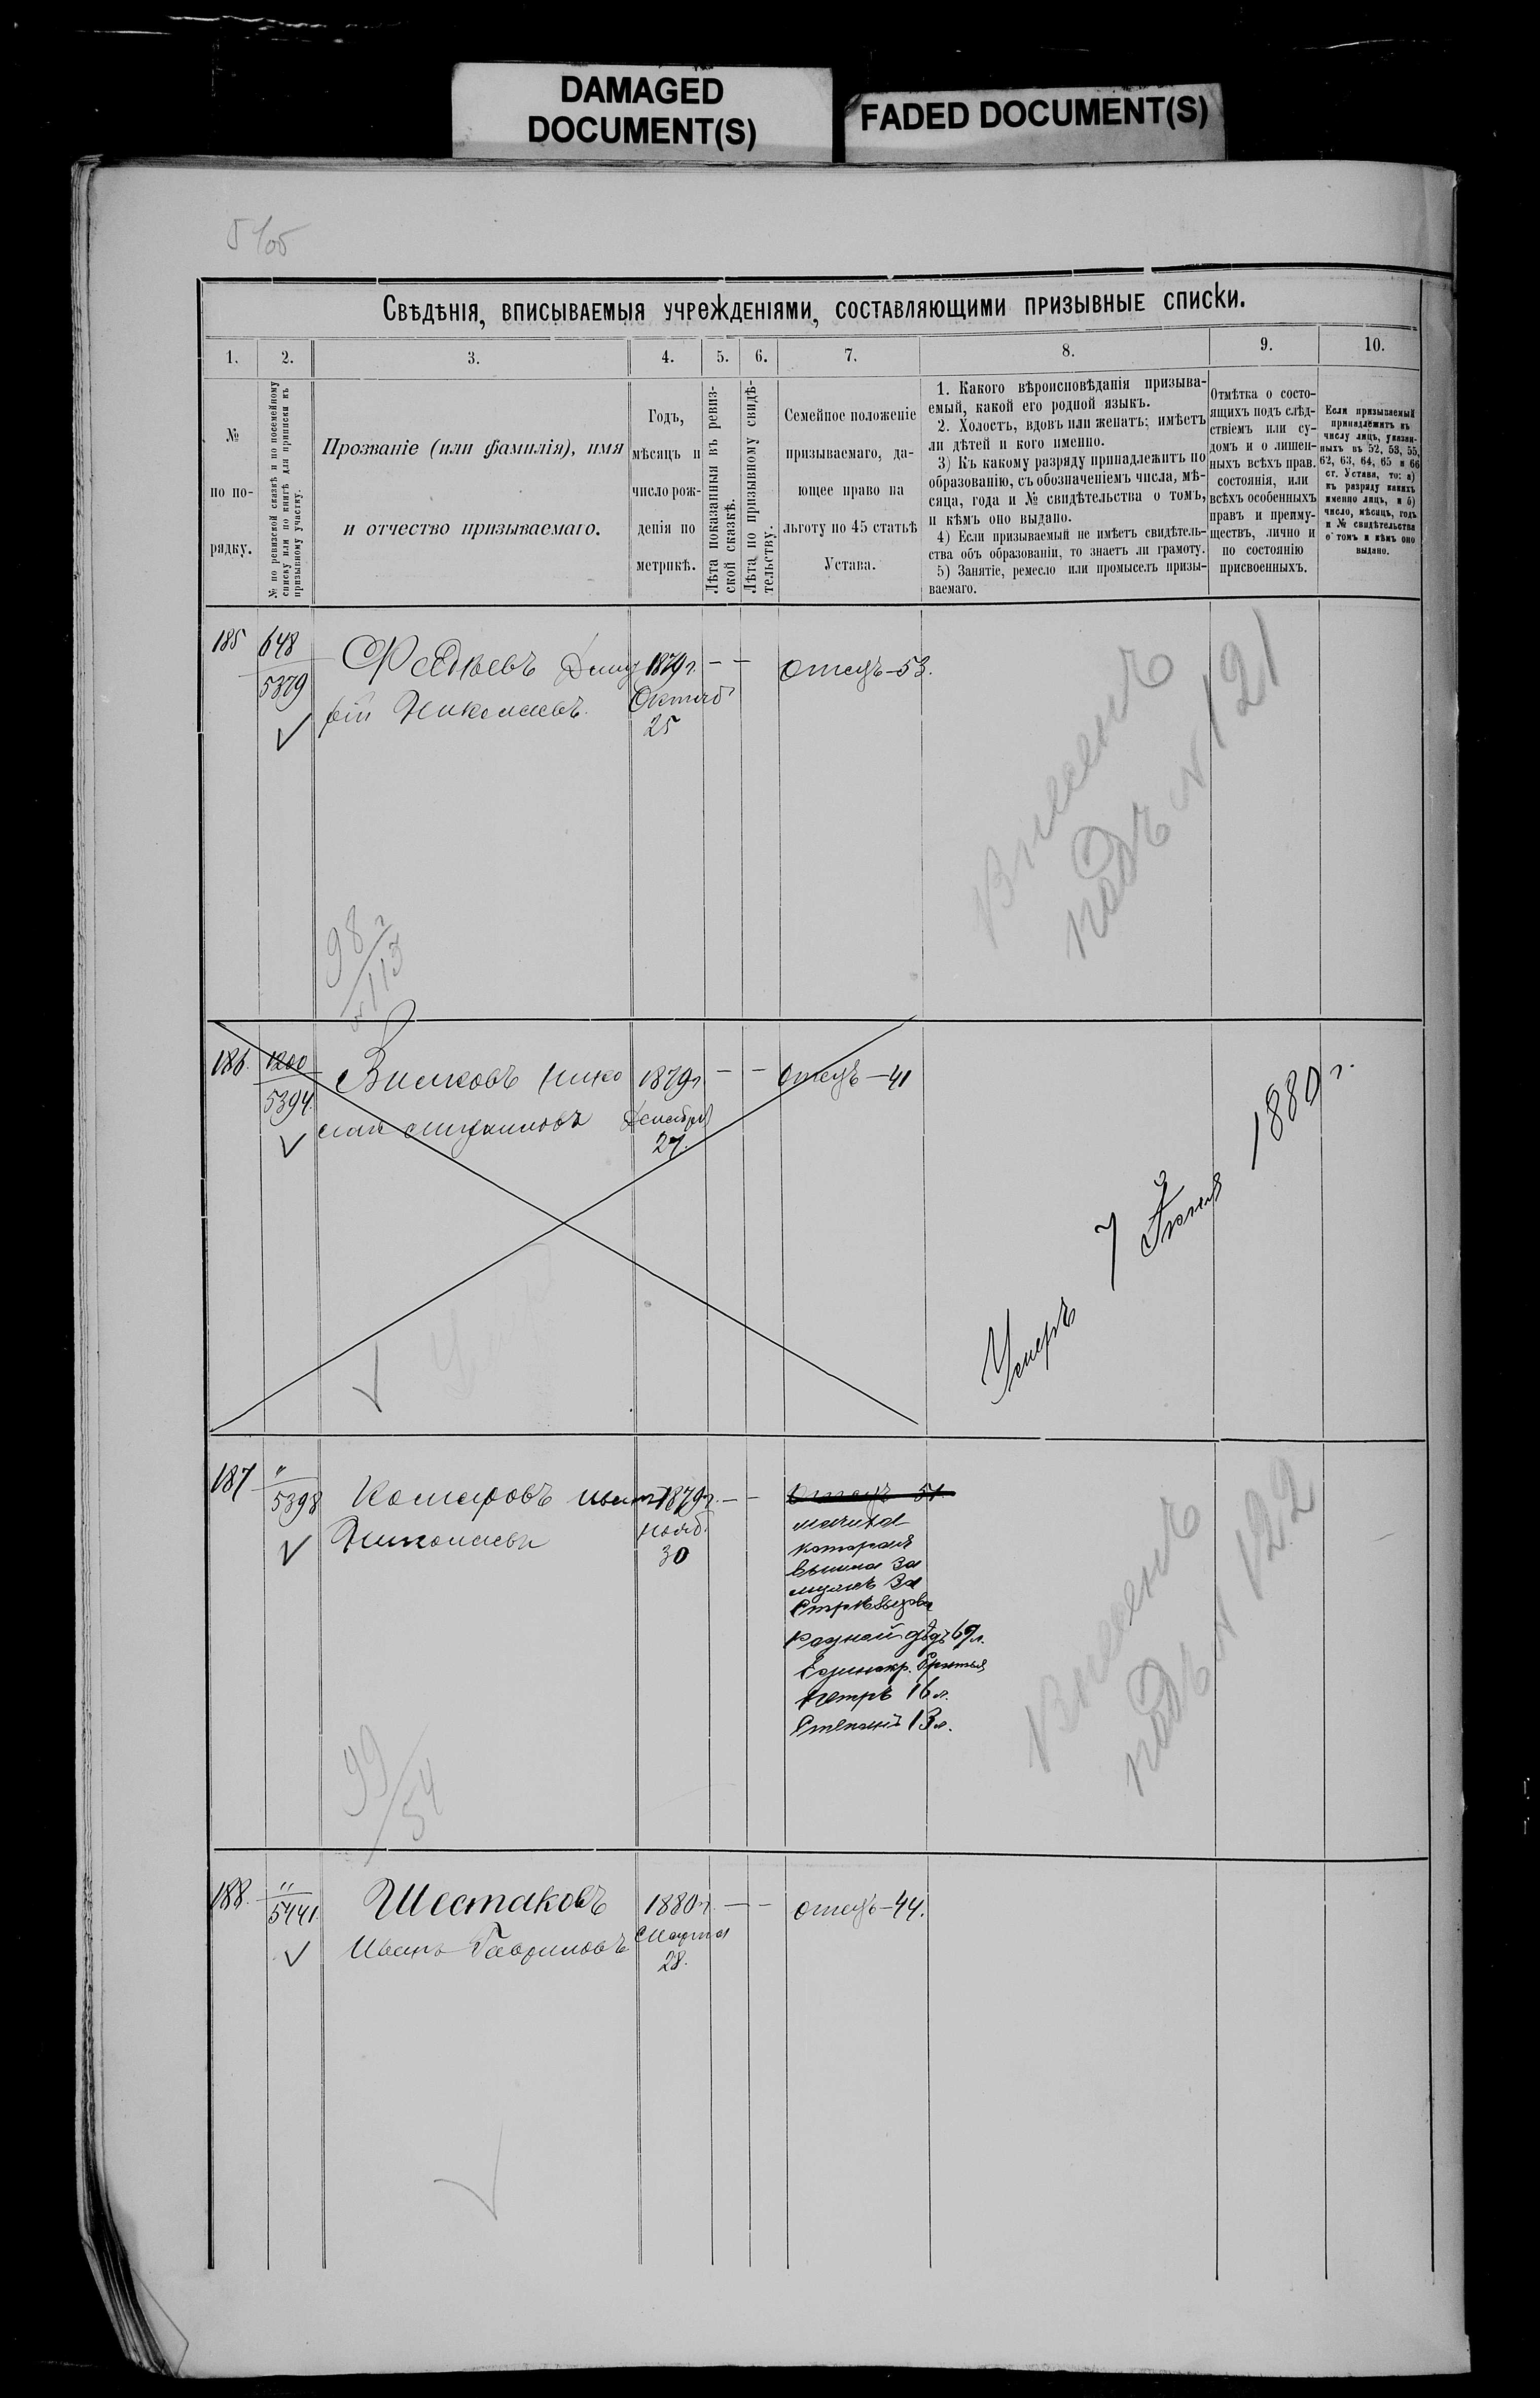 DAMAGED
DOCUMENT(S)
FADED DOCUMENT(S)
Свѣдѣнія, вписываемыя учрежденіями, составляющими призывные списки.
1.
2.
3.
4.
5.
6.
7.
8.
9.
10.
№
по по-
рядку.
№ по ревизской сказкѣ и по посемейному
списку или по книгѣ для приписки къ
призывному участку.
Прозваніе (или фамилія), имя
и отчество призываемаго.
Годъ,
мѣсяцъ и
число рож-
денія по
метрикѣ.
Лѣта показанныя въ ревиз-
ской сказкѣ.
Лѣта по призывному свидѣ-
тельству.
Семейное положеніе
призываемаго, да-
ющее право на
льготу по 45 статьѣ
Устава.
1. Какого вѣроисповѣданія призыва-
емый, какой его родной языкъ.
2. Холостъ, вдовъ или женатъ; имѣетъ
ли дѣтей и кого именно.
3) Къ какому разряду принадлежитъ по
образованію, съ обозначеніемъ числа, мѣ-
сяца, года и № свидѣтельства о томъ,
и кѣмъ оно выдано.
4) Если призываемый не имѣетъ свидѣтель-
ства объ образованіи, то знаетъ ли грамоту.
5) Занятіе, ремесло или промыселъ призы-
ваемаго.
Отмѣтка о состо-
ящихъ подъ слѣд-
ствіемъ или су-
домъ и о лишен-
ныхъ всѣхъ прав.
состоянія, или
всѣхъ особенныхъ
правъ и преиму-
ществъ, лично и
по состоянію
присвоенныхъ.
Если призываемый
принадлежитъ къ
числу лицъ, указан-
ныхъ въ 52, 53, 55,
62, 63, 64, 65 и 66
ст. Устава, то: а)
къ разряду какихъ
именно лицъ, и б)
число, мѣсяцъ, годъ
и № свидѣтельства
о томъ и кѣмъ оно
выдано.
185
648
5379
Николаевъ
1879 г.
Октяб
25
отецъ—53.
Внесенъ
подъ № 121
98
№ 113
186.
1200
5394
1879 г.
Декабря
27.
отецъ—41
Умеръ 7 Іюня 1880 г.
187
"
5398
Комаровъ Иванъ
Николаевъ
1879 г.
Нояб.
30
Отецъ 51
мачиха
которая
вышла за
мужъ за
родной дѣдъ 67 л.
Единокр. братья
Петръ 16 л.
Степанъ 13 л.
Внесенъ
подъ № 122
99
54
188.
"
5441.
Шестаковъ
Иванъ Гавриловъ
1880 г.
Марта
28.
отецъ—44.